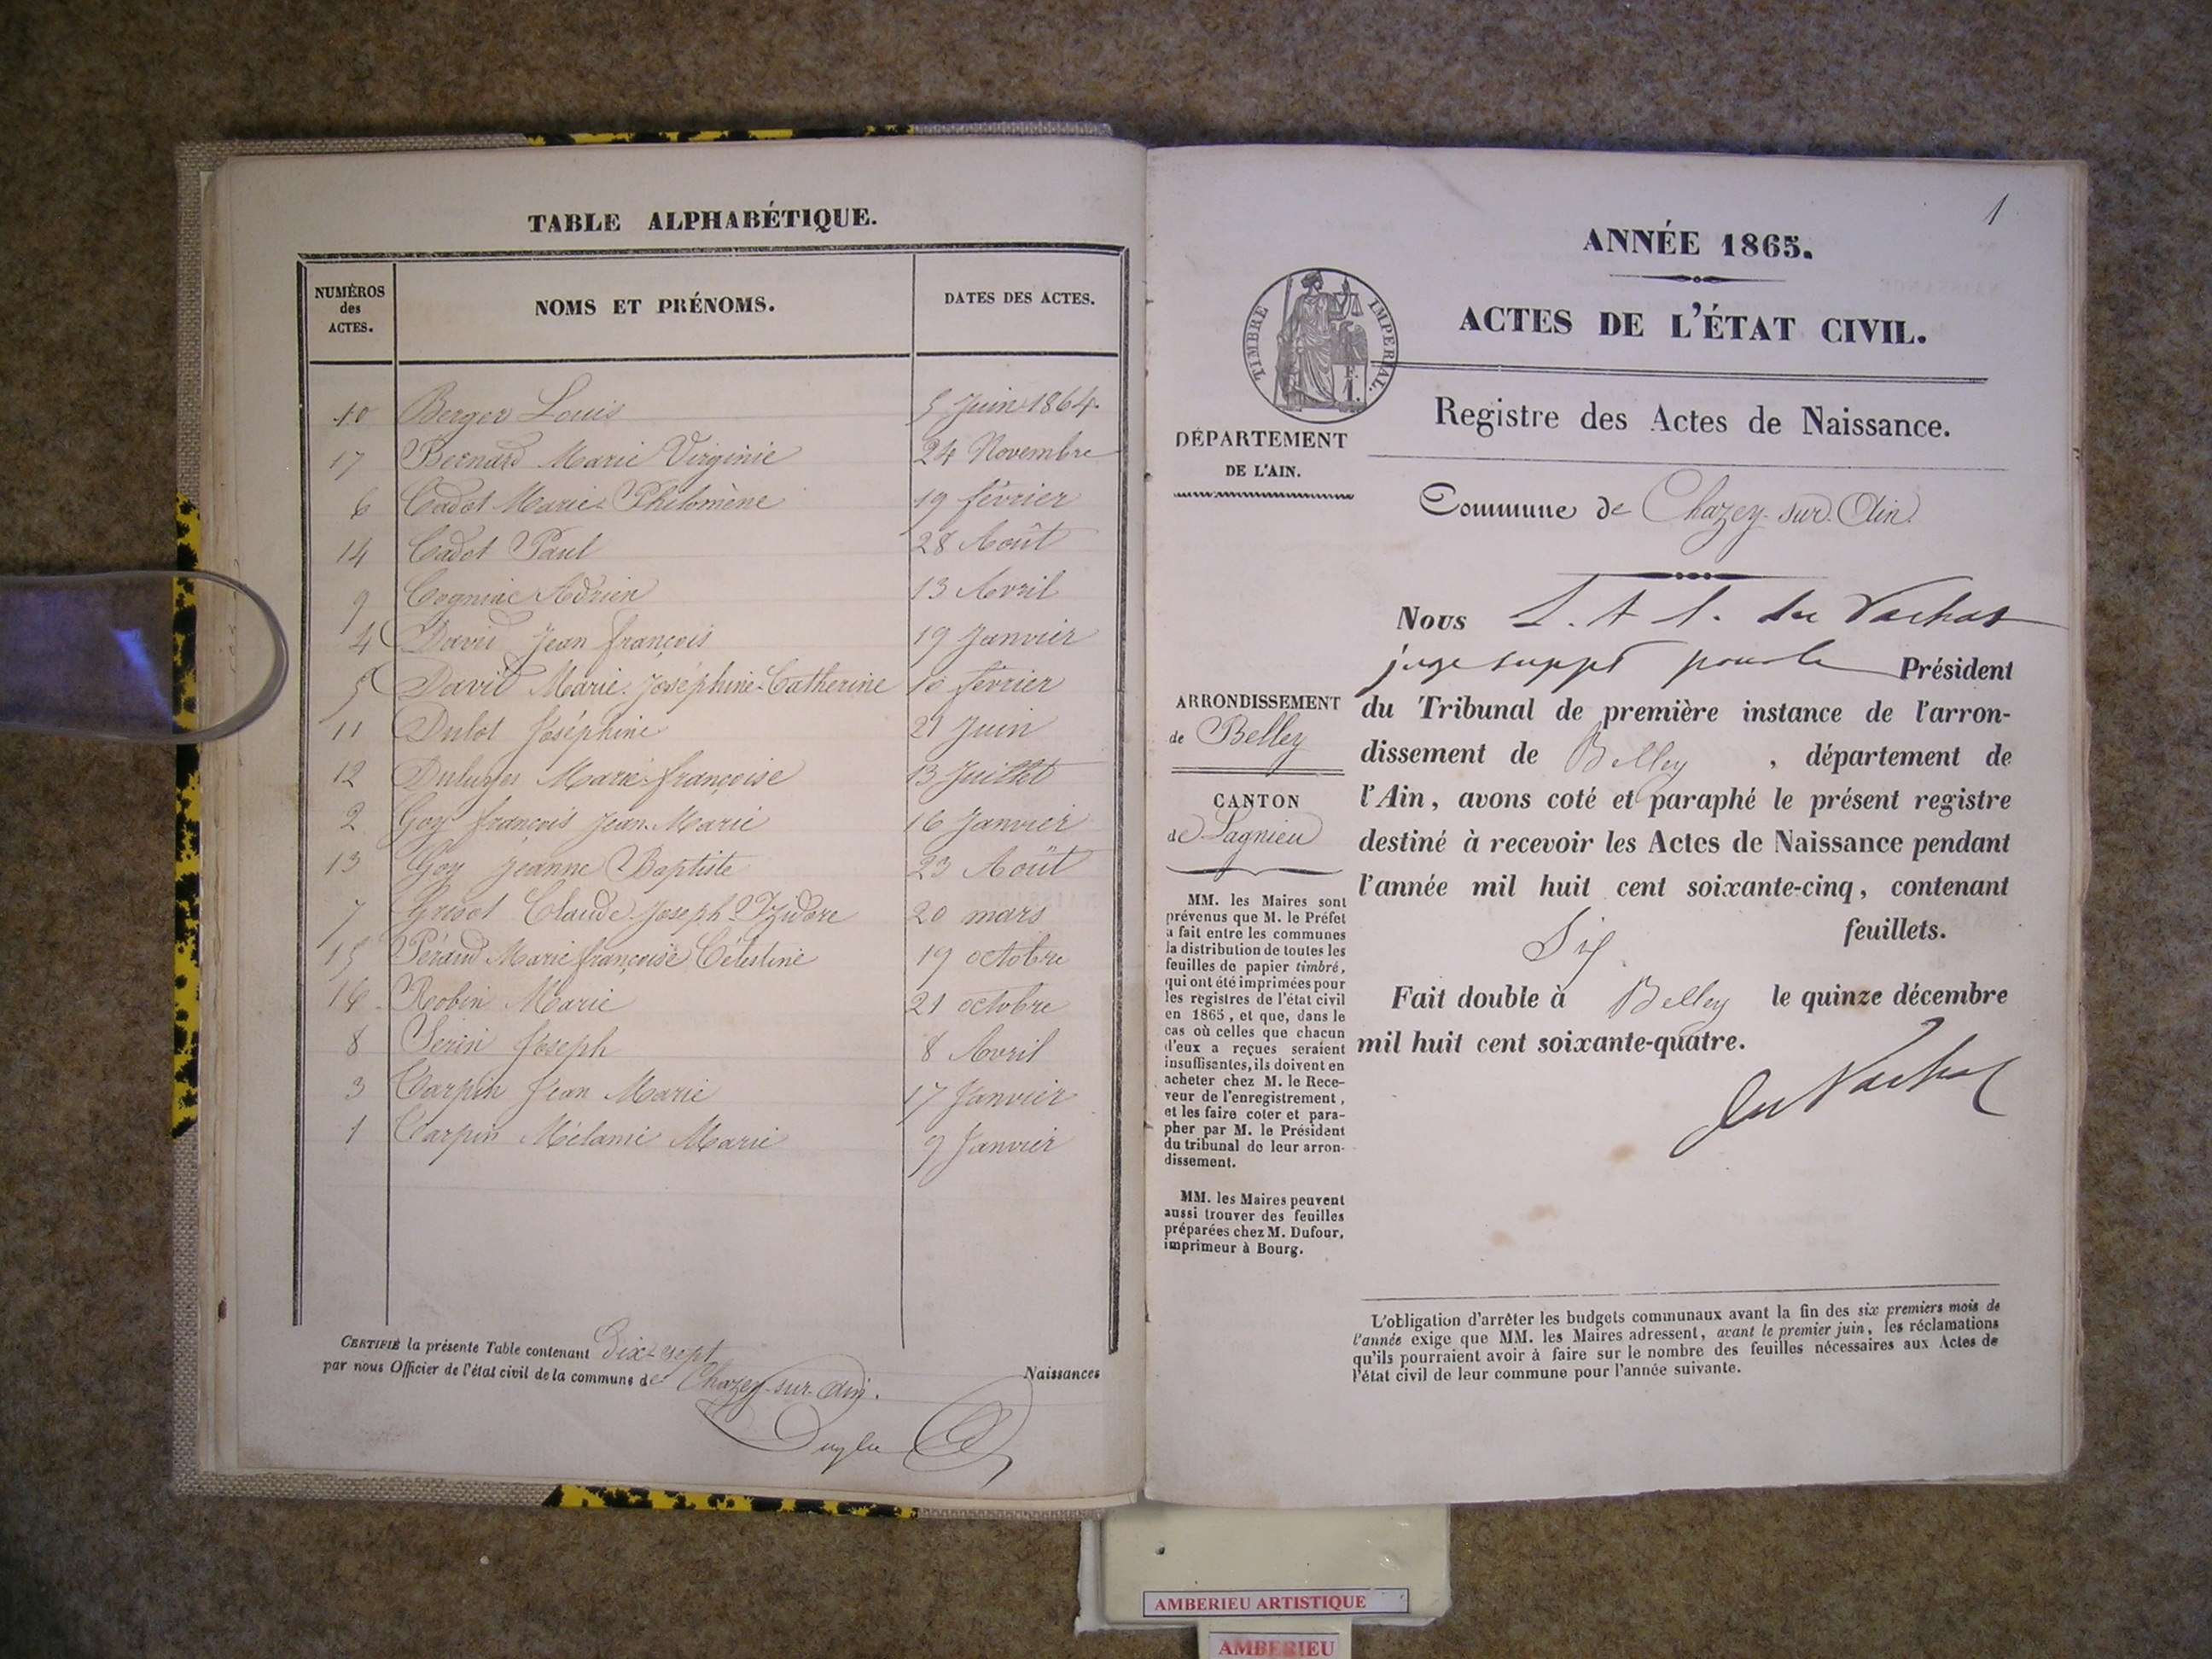 TABLE ALPHABÉTIQUE.
NUMÉROS des ACTES. NOMS ET PRÉNOMS. DATES DES ACTES.
10 Berger Louis 5 Juin 1864.
17 Bernard Marie Virginie 24 Novembre
6 Cadot Marie-Philomène 19 février
14 Cadot Paul 28 Août
9 Cogniac Adrien 13 Avril
4 David Jean françois 19 Janvier
5 David Marie-Joséphine-Catherine 10 février
11 Dulot Joséphine 21 Juin
12 Marie-françoise 13 Juillet
2 Goy françois Jean-Marie 16 Janvier
13 Goy Jeanne Baptiste 23 Août
7 Grisot Claude-Joseph-Izidore 20 mars
15 Péraud Marie françoise Célestine 19 octobre
16 Robin Marie 21 octobre
8 Serin Joseph 8 Avril
3 Carpin Jean Marie 17 Janvier
1 Carpin Mélanie Marie 9 Janvier
CERTIFIÉ la présente Table contenant Dix-sept
Naissances
par nous Officier de l'état civil de la commune de Chazey-sur-Ain.
1
ANNÉE 1865.
ACTES DE L'ÉTAT CIVIL.
TIMBRE IMPÉRIAL.
Registre des Actes de Naissance.
DÉPARTEMENT
DE L'AIN.
Commune de Chazey-sur-Ain.
Nous L. A. du Vachat
juge suppt pour le Président
du Tribunal de première instance de l'arron-
dissement de Belley, département de
l'Ain, avons coté et paraphé le présent registre
destiné à recevoir les Actes de Naissance pendant
l'année mil huit cent soixante-cinq, contenant
Six feuillets.
Fait double à Belley le quinze décembre
mil huit cent soixante-quatre.
du Vachat
ARRONDISSEMENT
de Belley
CANTON
de Lagnieu
MM. les Maires sont
prévenus que M. le Préfet
a fait entre les communes
la distribution de toutes les
feuilles de papier timbré,
qui ont été imprimées pour
les registres de l'état civil
en 1865, et que, dans le
cas où celles que chacun
d'eux a reçues seraient
insuffisantes, ils doivent en
acheter chez M. le Rece-
veur de l'enregistrement,
et les faire coter et para-
pher par M. le Président
du tribunal de leur arron-
dissement.
MM. les Maires peuvent
aussi trouver des feuilles
préparées chez M. Dufour,
imprimeur à Bourg.
L'obligation d'arrêter les budgets communaux avant la fin des six premiers mois de
l'année exige que MM. les Maires adressent, avant le premier juin, les réclamations
qu'ils pourraient avoir à faire sur le nombre des feuilles nécessaires aux Actes de
l'état civil de leur commune pour l'année suivante.
AMBERIEU ARTISTIQUE
AMBERIEU